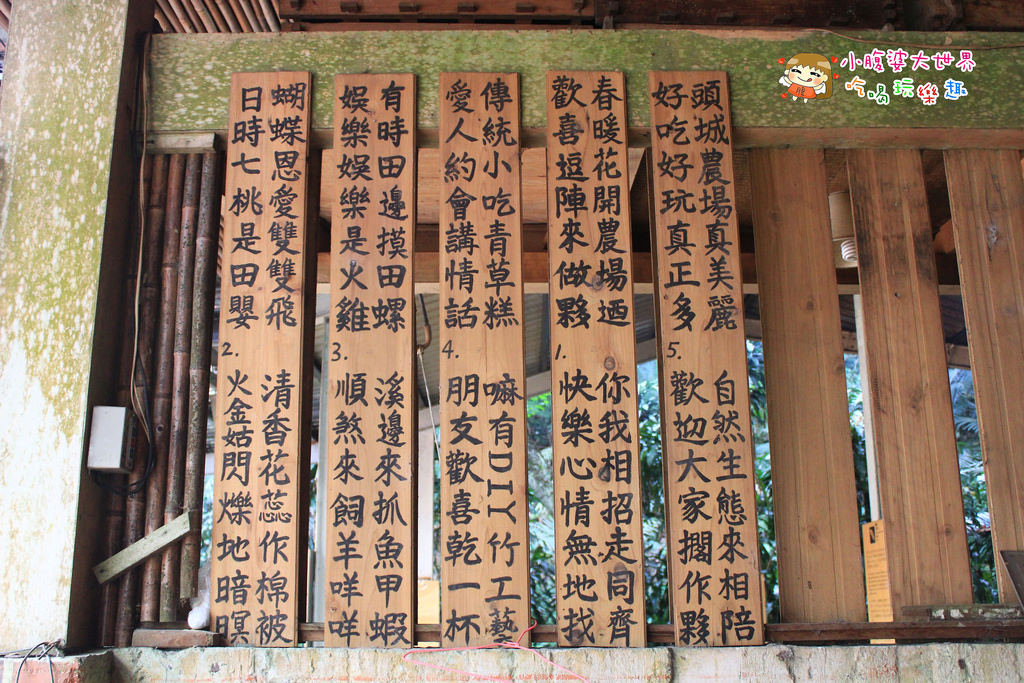 小腹婆大世界
吃喝玩樂趣
頭城農場真美麗 自然生態來相陪
好吃好玩真正多 5. 歡迎大家擱作夥
春暖花開農場迺 你我相招走同齊
歡喜逗陣來做夥 1. 快樂心情無地找
傳統小吃青草糕 嘛有DIY竹工藝
愛人約會講情話 4. 朋友歡喜乾一杯
有時田邊摸田螺 溪邊來抓魚甲蝦
娛樂娛樂是火雞 3. 順煞來飼羊咩咩
蝴蝶恩愛雙雙飛 清香花蕊作棉被
日時七桃是田嬰 2. 火金姑閃爍地暗暝